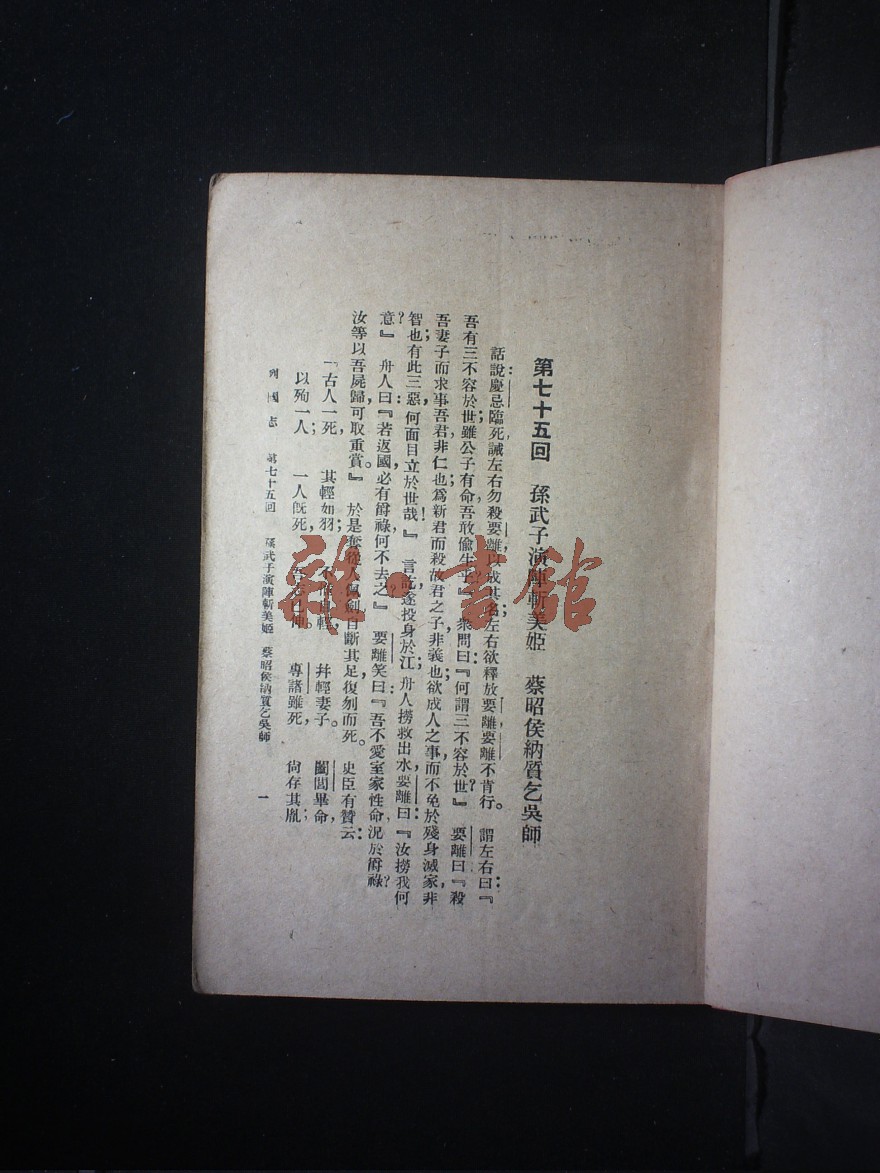 第七十五回 孫武子演陣斬美姬 蔡昭侯納質乞吳師
話說慶忌臨死,誡左右勿殺要離,以成其名;左右欲釋放要離,要離不肯行。謂左右曰:『
吾有三不容於世;雖公子有命,吾敢偷生乎?』衆問曰:『何謂三不容於世?』要離曰:『殺
吾妻子而求事吾君,非仁也;爲新君而殺故君之子,非義也;欲成人之事,而不免於殘身滅家,非
智也;有此三惡,何面目立於世哉!』言訖,遂投身於江;舟人撈救出水,要離曰:『汝撈我何
意?』舟人曰:『若返國,必有爵祿,何不去之』要離笑曰:『吾不愛室家性命,況於爵祿?
汝等以吾屍歸,可取重賞。』於是奪從人佩劍,自斷其足,復刎而死。史臣有贊云:
「古人一死, 其輕如羽; 不 輕, 幷輕妻子。 闔閭畢命,
以殉一人; 一人旣死, 吾志已伸。 專諸雖死, 尙存其胤;
列國志 第七十五回 孫武子演陣斬美姬 蔡昭侯納質乞吳師 一
雜·書館